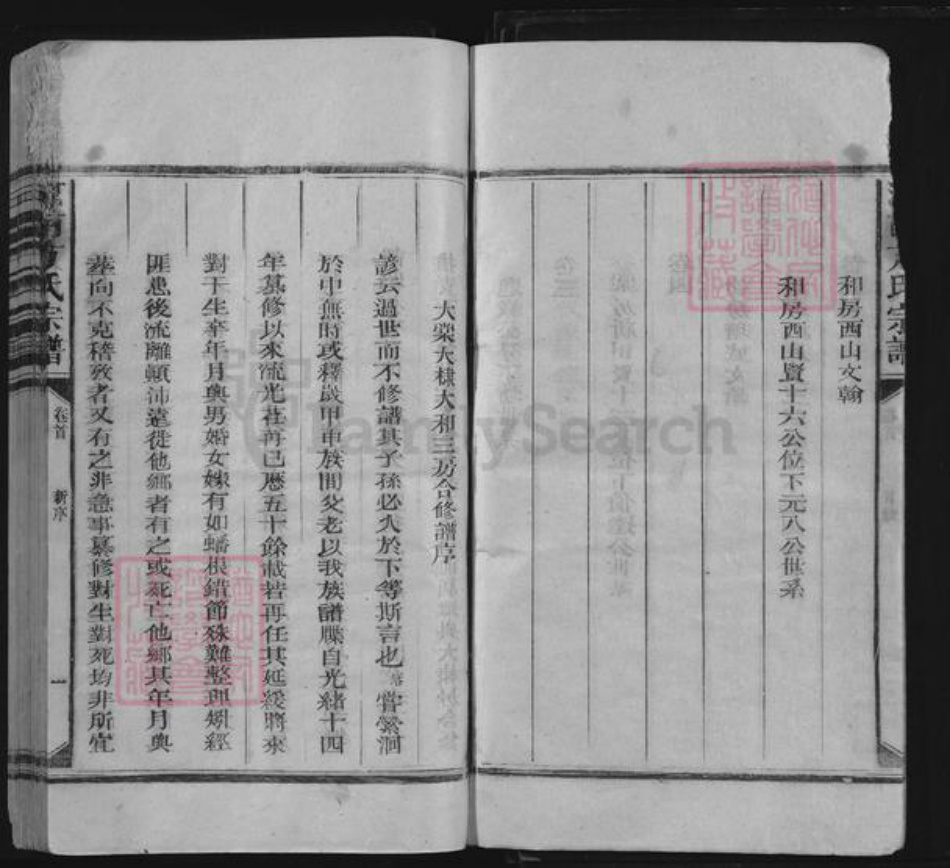 和房西山文翰
和房西山賢十六公位下元八公世系
大榮大棣大和三房合修譜序
諺云過世而不修譜其子孫必入於下等斯言也 嘗縈洄
於中無時或釋歲甲申族間父老以我族譜牒自光緒十四
年纂修以來流光荏苒已歷五十餘載若再任其延緩將來
對于生卒年月與男婚女嫁有如蟠根錯節殊難整理矧經
匪患後流離顛沛遠徙他鄉者有之或死亡他鄉其年月與
塟向不克稽攷者又有之非急事纂修對生對死均非所宜
氏宗譜
卷首
新序
一
FamilySearch